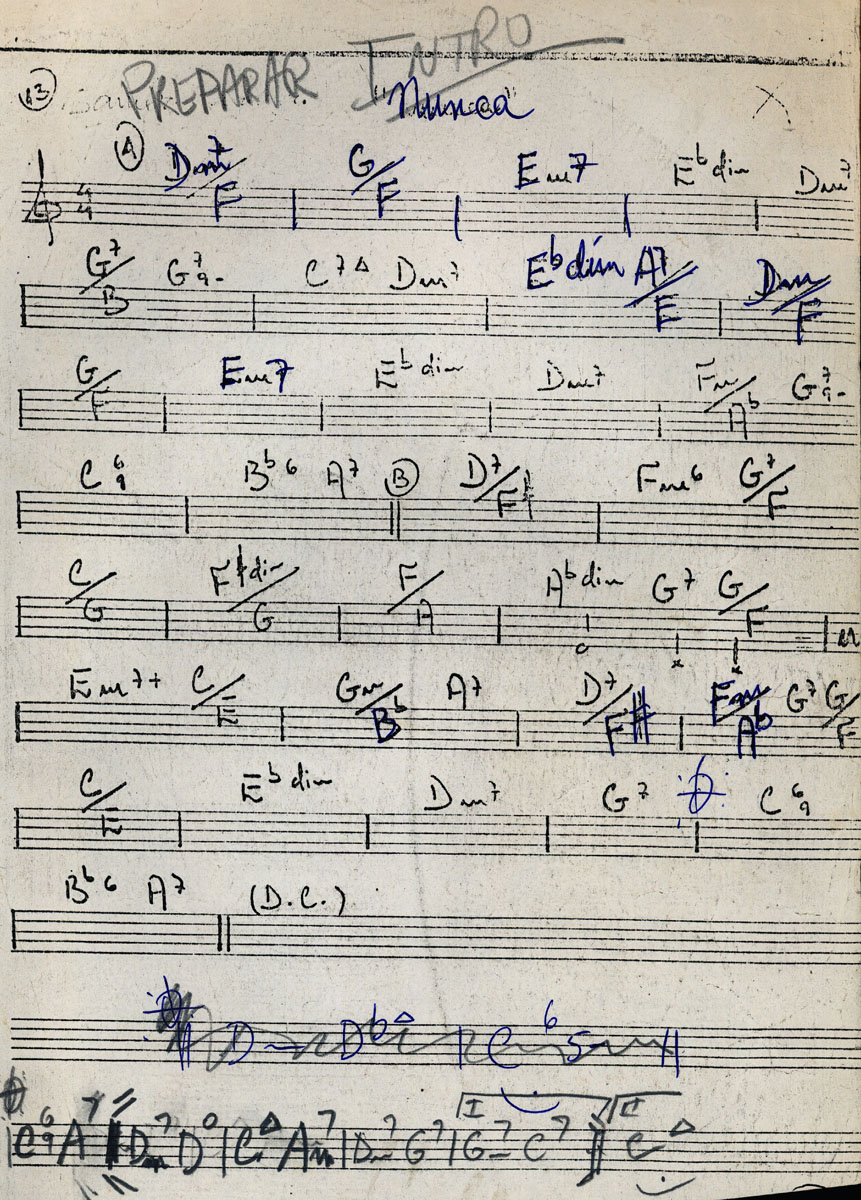 PREPARAR INTRO
13 "Nunca"
A Dm7/F G/F Em7 E♭dim Dm7
4/4
G7/B G7 9- C7Δ Dm7 E♭dim A7/E Dm/F
G/F Em7 E♭dim Dm7 Fm/A♭ G7 9-
C6 9 B♭6 A7 B D7/F# Fm6 G7/F
C/G F#dim/G F/A A♭dim G7 G/F
Em7+ C/E Gm/B♭ A7 D7/F# Fm/A♭ G7 G/F
C/E E♭dim Dm7 G7 C6 9
B♭6 A7 (D.C.)
Dm D♭Δ C6
I II
C6 9 A7 Dm7 D° CΔ Am7 Dm7 G7 Gm7 C7 CΔ